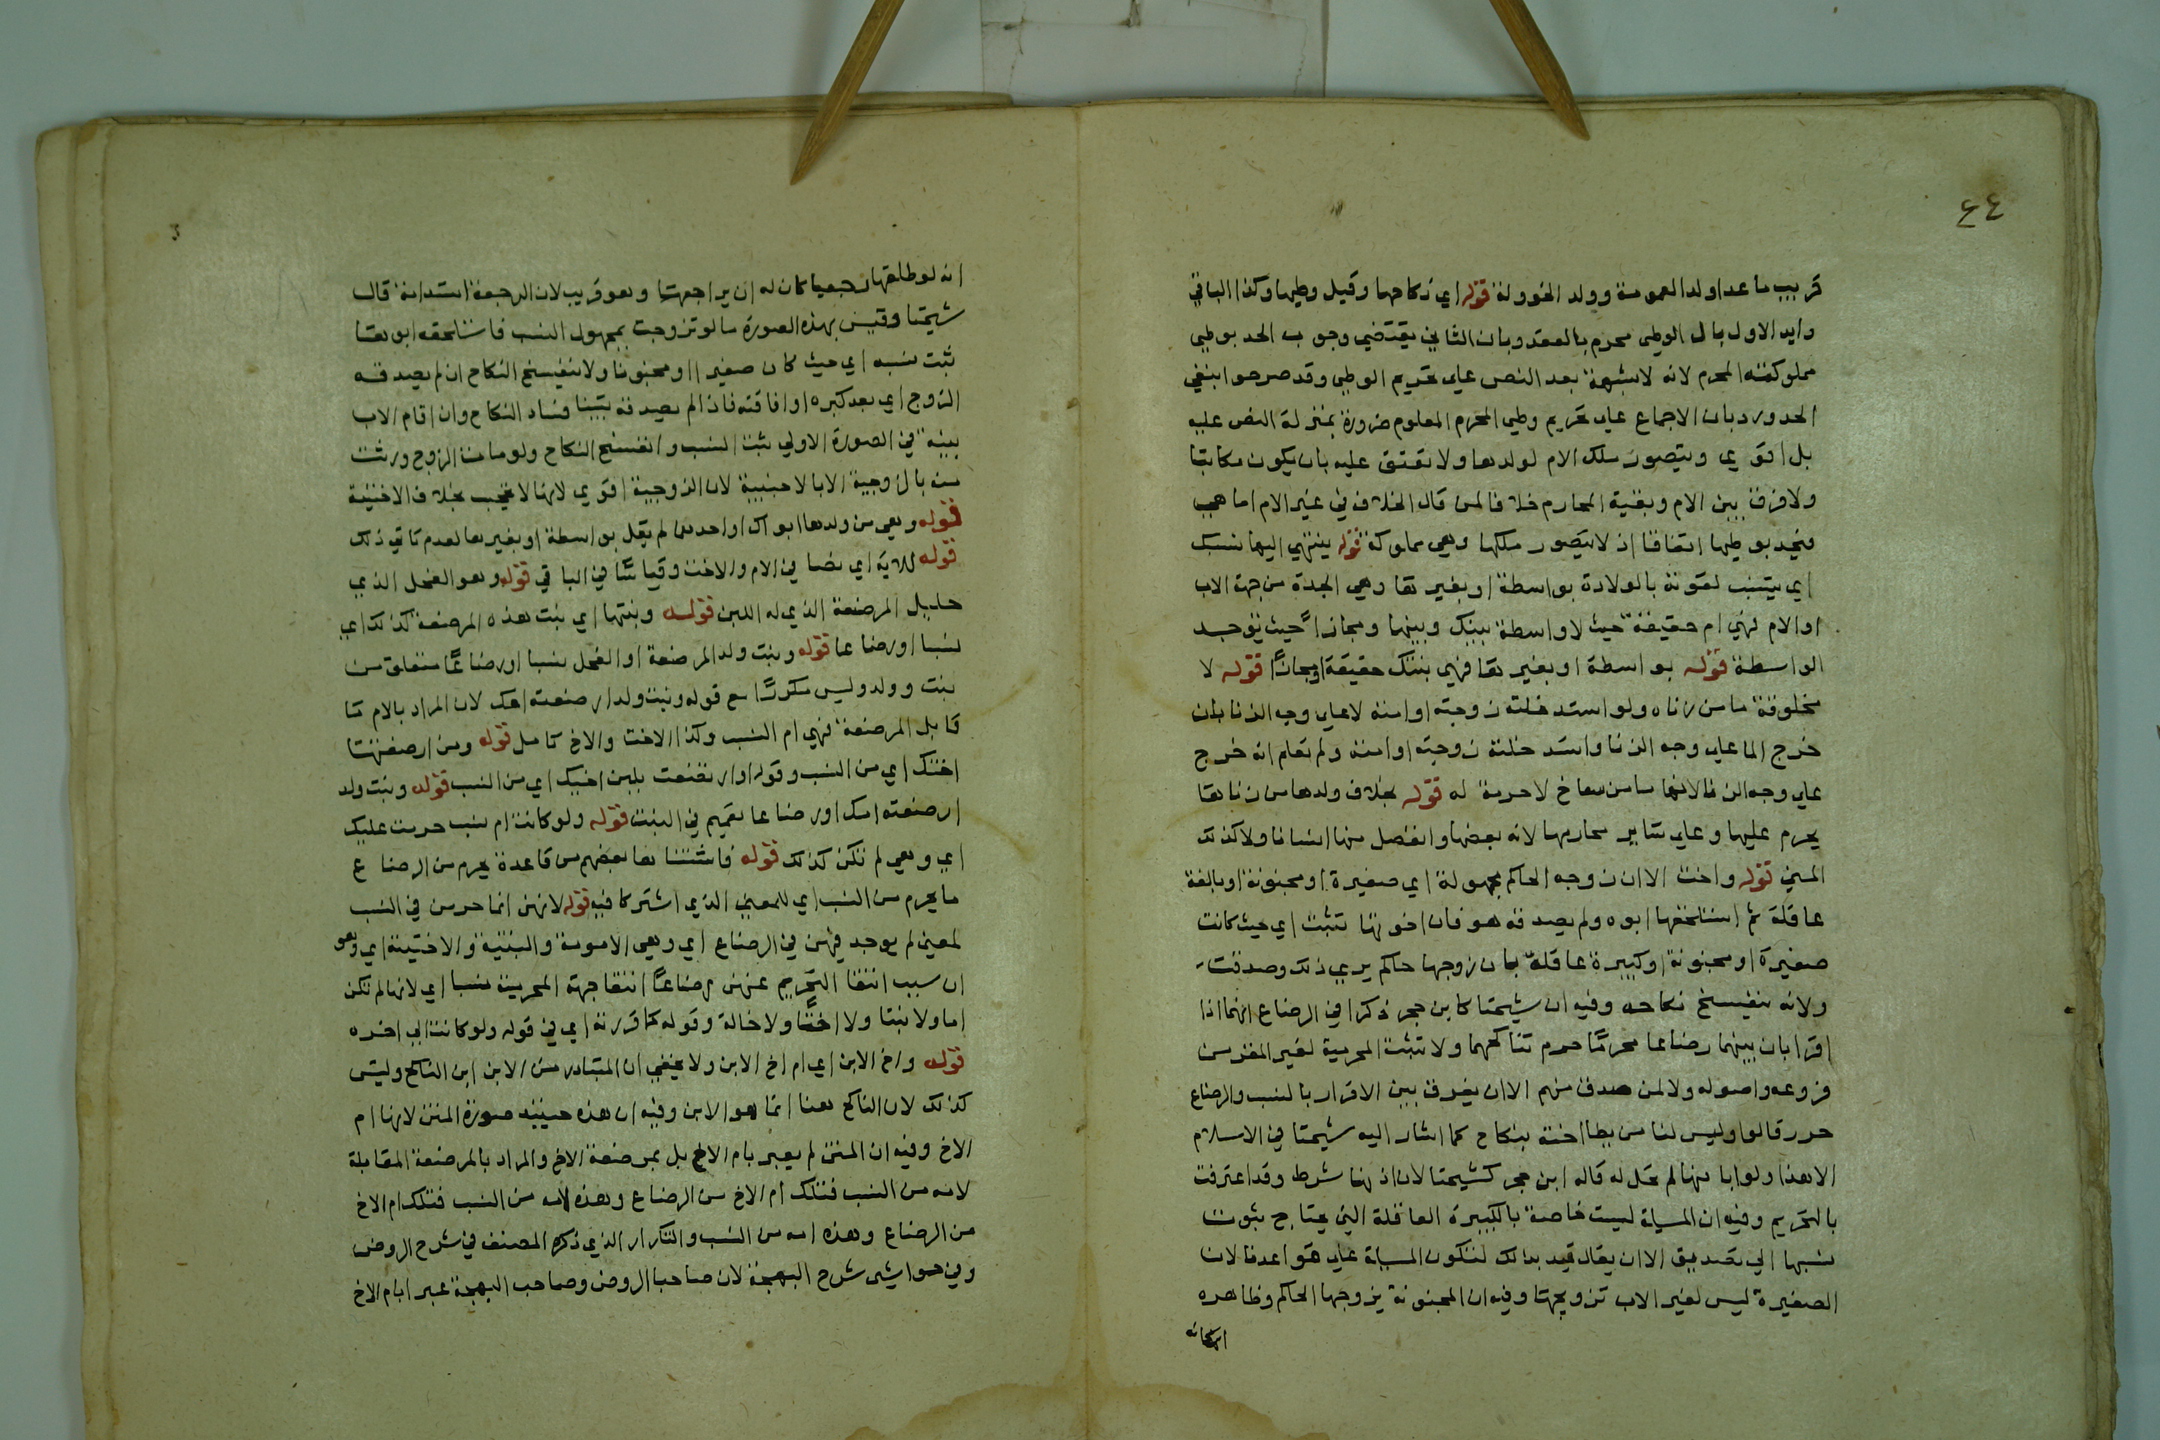 ٤٤
قريب ما عدا ولد العمومة وولد الخوولة قوله اي نكاحها وقيل وطيها وكذا الباقي
وايد الاول بان الوطي محرم بالعقد وبان الثاني يقتضي وجوب الحد بوطي
مملوكته المحرم لانه لا شبهة بعد النص علي تحريم الوطي وقد صرحوا بنفي
الحد ورد بان الاجماع علي تحريم وطي المحرم المعلوم ضرورة بمنزلة النص عليه
بل اقوي ويتصور ملك الام لولدها ولا تعتق عليه بان يكون مكاتبا
ولا فرق بين الام وبقية المحارم خلافا لمن قال الخلاف في غير الام اما هي
فيحد بوطيها اتفاقا اذ لا يتصور ملكها وهي مملوكة قوله ينتهي اليها نسبك
اي ينسب لغونة بالولادة بواسطة او بغيرها وهي الجدة من جهة الاب
او الام فهي ام حقيقة حيث لا واسطة بينك وبينها ومجازا حيث توجد
الواسطة قوله بواسطة او بغيرها فهي بنتك حقيقة او مجازا قوله لا
مخلوقة ما من زناه ولو استدخلته زوجته او امته لا علي وجه الزنا بان
خرج الما علي وجه الزنا واستدخلته زوجته او امته ولم تعلم انه خرج
علي وجه الزنا لانها ما من سفاح لا حرمة له قوله بخلاف ولدها من زناها
يحرم عليها وعلي ساير محارمها لانه بعضها وانفصل منها انسانا ولا كذلك
المني قوله واخت الا ان زوجه الحاكم مجهولة اي صغيرة او مجنونة او بالغة
عاقلة ثم استلحقها ابوه ولم يصدقه هو فان اخوتها تثبت اي حيث كانت
صغيرة او مجنونة او كبيرة عاقلة بان زوجها حاكم يري ذلك وصدقت
ولانه ينفسخ نكاحه وفيه ان شيخنا كابن حجر ذكرا في الرضاع انهما اذا
اقرا بان بينهما رضاعا محرما حرم تناكحهما ولا تثبت المحرمية لغير المقر من
فروعه واصوله ولا لمن صدق منهم الا ان يفرق بين الاقرار بالنسب والرضاع
حرر قالوا وليس لنا من يطا اخته بنكاح كما اشار اليه شيخنا في الاسلام
الا هذا ولو ابانها لم تحل له قاله ابن حجر كشيخنا لان اذنها شرط وقد اعترفت
بالتحريم وفيه ان المسالة ليست خاصة بالكبيرة العاقلة التي يحتاج ثبوت
نسبها الي تصديق الا ان يقال قيد بذلك لتكون المسالة علي قواعدنا لان
الصغيرة ليس لغير الاب تزويجها وفيه ان المجنونة يزوجها الحاكم وظاهره
انه لو طلقها رجعيا كان له ان يراجعها وهو قريب لان الرجعة استدامة قال
شيخنا وقيس بهذه الصورة ما لو تزوجت بمجهول النسب فاستلحقه ابوها
ثبت نسبه اي حيث كان صغيرا او مجنونا ولا ينفسخ النكاح ان لم يصدقه
الزوج اي بعد كبره او افاقته فاذا لم يصدقه تبينا فساد النكاح وان اقام الاب
بينة في الصورة الاولي ثبت النسب وانفسخ النكاح ولو مات الزوج ورثت
منه بالزوجية لا بالاختية لان الزوجية اقوي لانها لا تحجب بخلاف الاختية
قوله وهي من ولدها ابواك او احدهما لم يقل بواسطة او بغيرها لعدم تاتي ذلك
قوله للاية اي نصا في الام والاخت وقياسا في الباقي قوله وهو الفحل الذي
حليل المرضعة الذي له اللبن قوله وبنتها اي بنت هذه المرضعة كذلك اي
نسبا او رضاعا قوله وبنت ولد المرضعة او الفحل نسبا او رضاعا متعلق من
بنت وولد وليس مكررا مع قوله وبنت ولد ارضعته امك لان المراد بالام ما
قابل المرضعة فهي ام النسب وكذا الاخت والاخ تامل قوله ومن ارضعتها
اختك اي من النسب وقوله او ارتضعت بلبن اخيك اي من النسب قوله وبنت ولد
ارضعته امك او رضاعا تعميم في البنت قوله ولو كانت ام نسب حرمت عليك
اي وهي لم تكن كذلك قوله فاستثناها بعضهم من قاعدة يحرم من الرضاع
ما يحرم من النسب اي للمعني الذي اشتركا فيه قوله لانهن انما حرمن في النسب
لمعني لم يوجد فيهن في الرضاع اي وهي الامومة والبنتية والاختية اي وهو
ان سبب انتفا التحريم عنهن رضاعا انتفا جهة المحرمية نسبا اي لانها لم تكن
اما ولا بنتا ولا اختا ولا خالة وقوله كما قررته اي في قوله ولو كانت الي اخره
قوله واخ الابن اي ام اخ الابن ولا يخفي ان المتبادر من الابن ابن الناكح وليس
كذلك لان الناكح هنا انما هو الابن وفيه ان هذه حينئذ صورة المتن لانها ام
الاخ وفيه ان المتن لم يعبر بام الاخ بل بمرضعة الاخ والمراد بالمرضعة المقابلة
لامه من النسب فتلك ام الاخ من الرضاع وهذه لامه من النسب فتلك ام الاخ
من الرضاع وهذه امه من النسب والتكرار الذي ذكره المصنف في شرح الروض
وفي حواشي شرح البهجة لان صاحبا الروض وصاحب البهجة عبرا بام الاخ